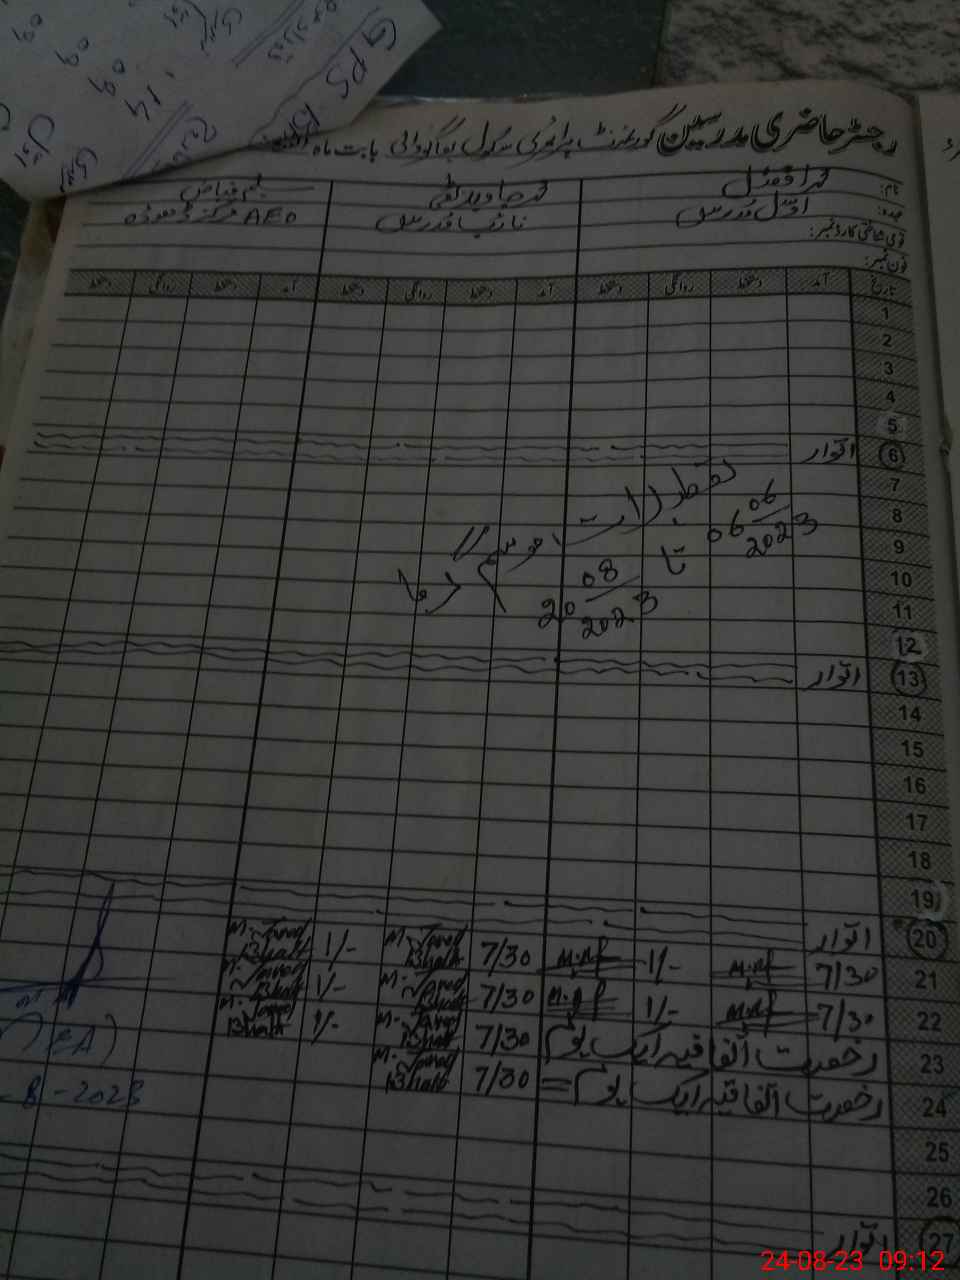 GPS
14
09
09
رجسٹر حاضری مدرسین گورنمنٹ پرائمری سکول بابت ماہ
نام: محمد افضل محمد جاوید بھٹی
عہدہ: اوّل مدرس نائب مدرس AEO مرکز
قومی شناختی کارڈ نمبر:
فون نمبر:
تاریخ آمد دستخط روانگی دستخط آمد دستخط روانگی دستخط آمد دستخط روانگی دستخط
1
2
3
4
5
6 اتوار
7
8
9
10
11
تعطیلات موسم گرما
06-06-2023 تا 20-08-2023
12
13 اتوار
14
15
16
17
18
19
20 اتوار
21 7/30 1/- 7/30 M. Javed Bhatti 1/- M. Javed Bhatti
22 7/30 1/- 7/30 M. Javed Bhatti 1/- M. Javed Bhatti
23 رخصت اتفاقیہ ایک یوم 7/30 M. Javed Bhatti 1/- M. Javed Bhatti
24 رخصت اتفاقیہ ایک یوم = 7/30 M. Javed Bhatti
25
26
27 اتوار
-8-2023
24-08-23 09:12